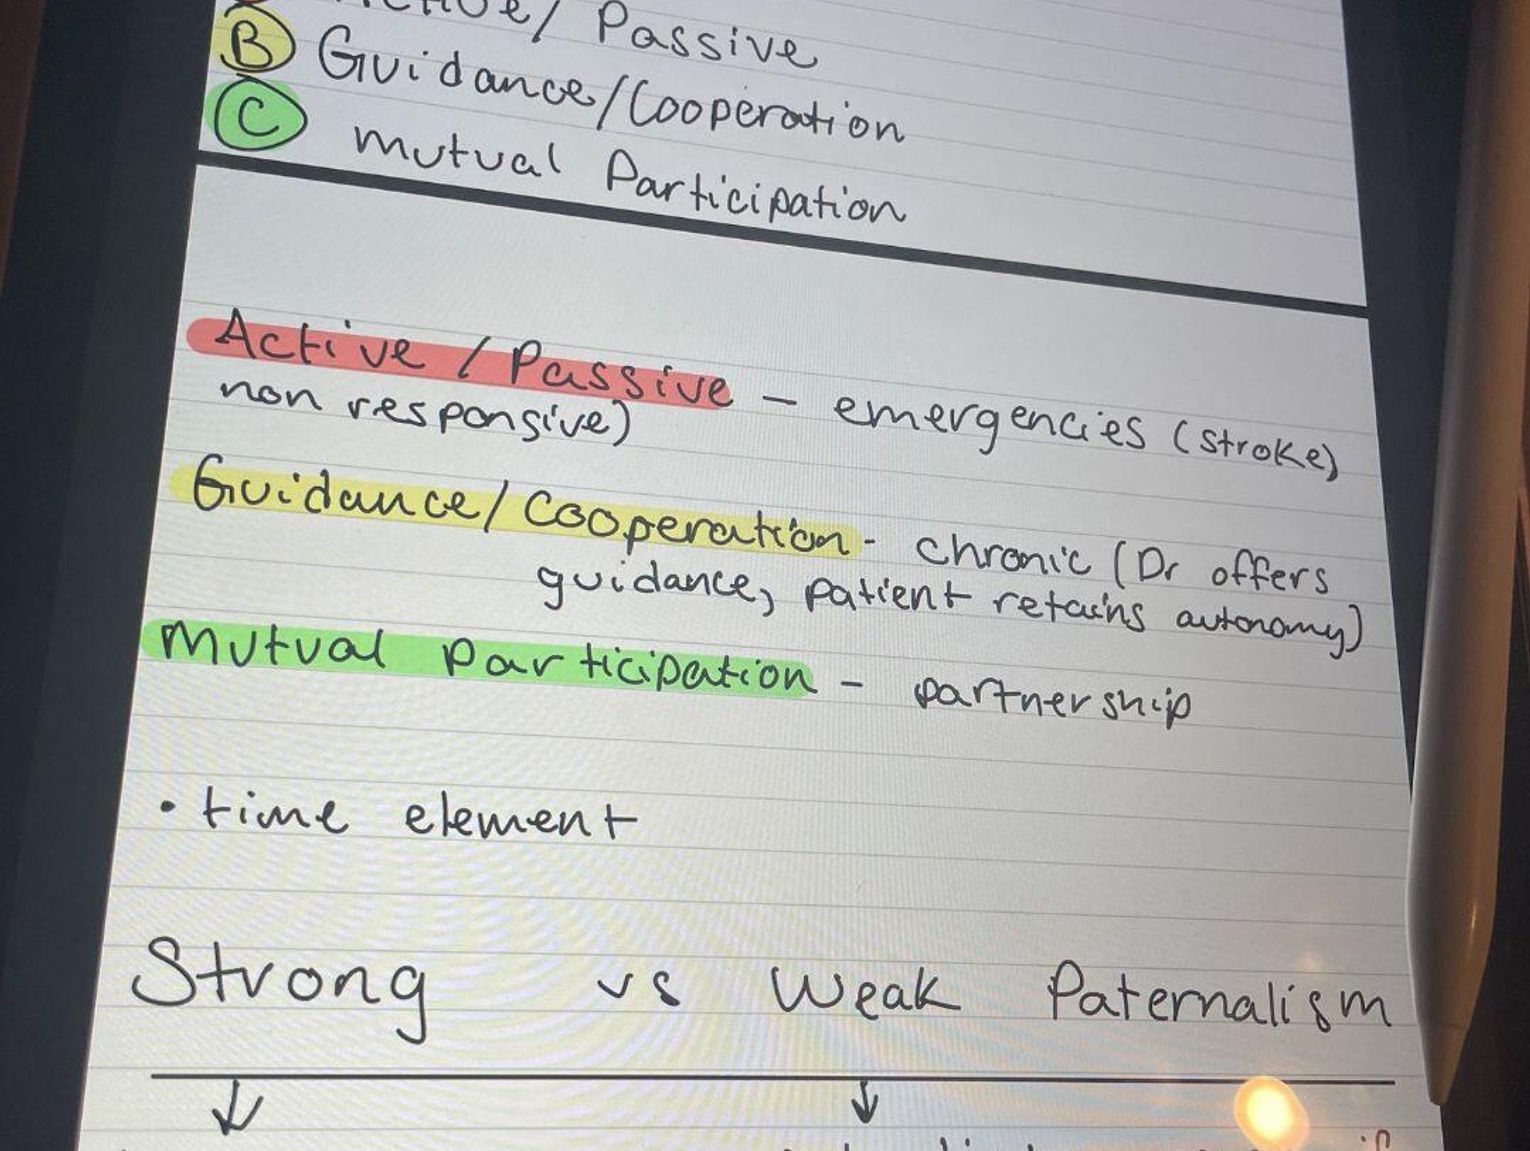 / Passive
B Guidance/Cooperation
C mutual Participation
Active / Passive – emergencies (stroke,
non responsive)
Guidance/Cooperation - chronic (Dr offers
guidance, patient retains autonomy)
Mutual Participation – partnership
• time element
Strong vs Weak Paternalism